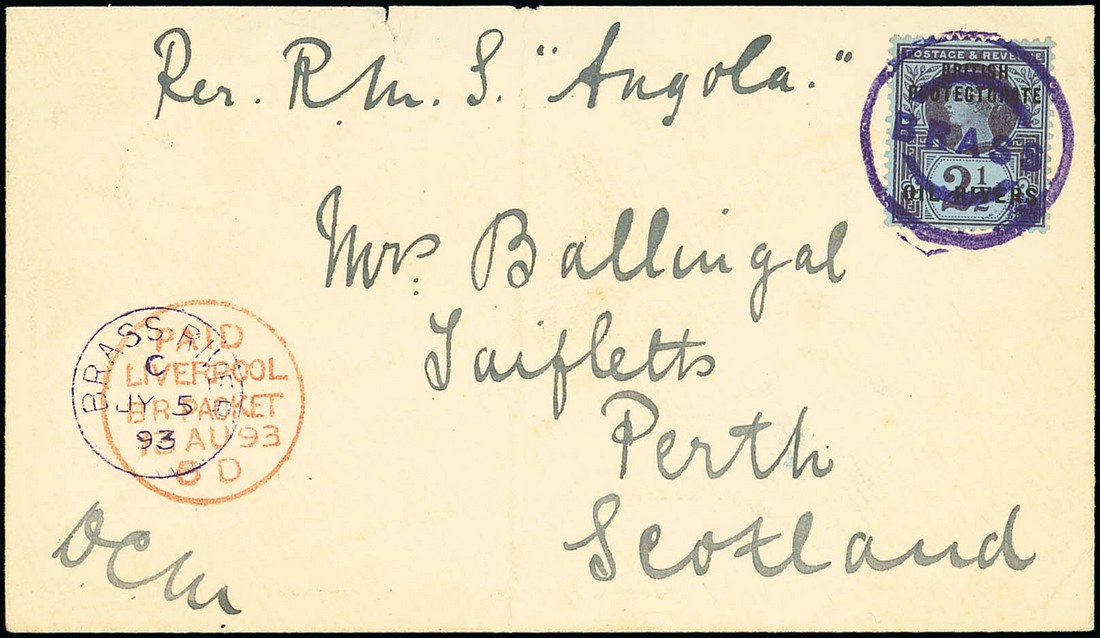 Per. R.M.S. "Angola."
POSTAGE & REVENUE
BRITISH
PROTECTORATE
BRASS
2½
OIL RIVERS
Mrs. Ballingal
Taifletts
Perth
Scotland
BRASS RIVER
C
JY 5
93
PAID
LIVERPOOL
BR PACKET
13 AU 93